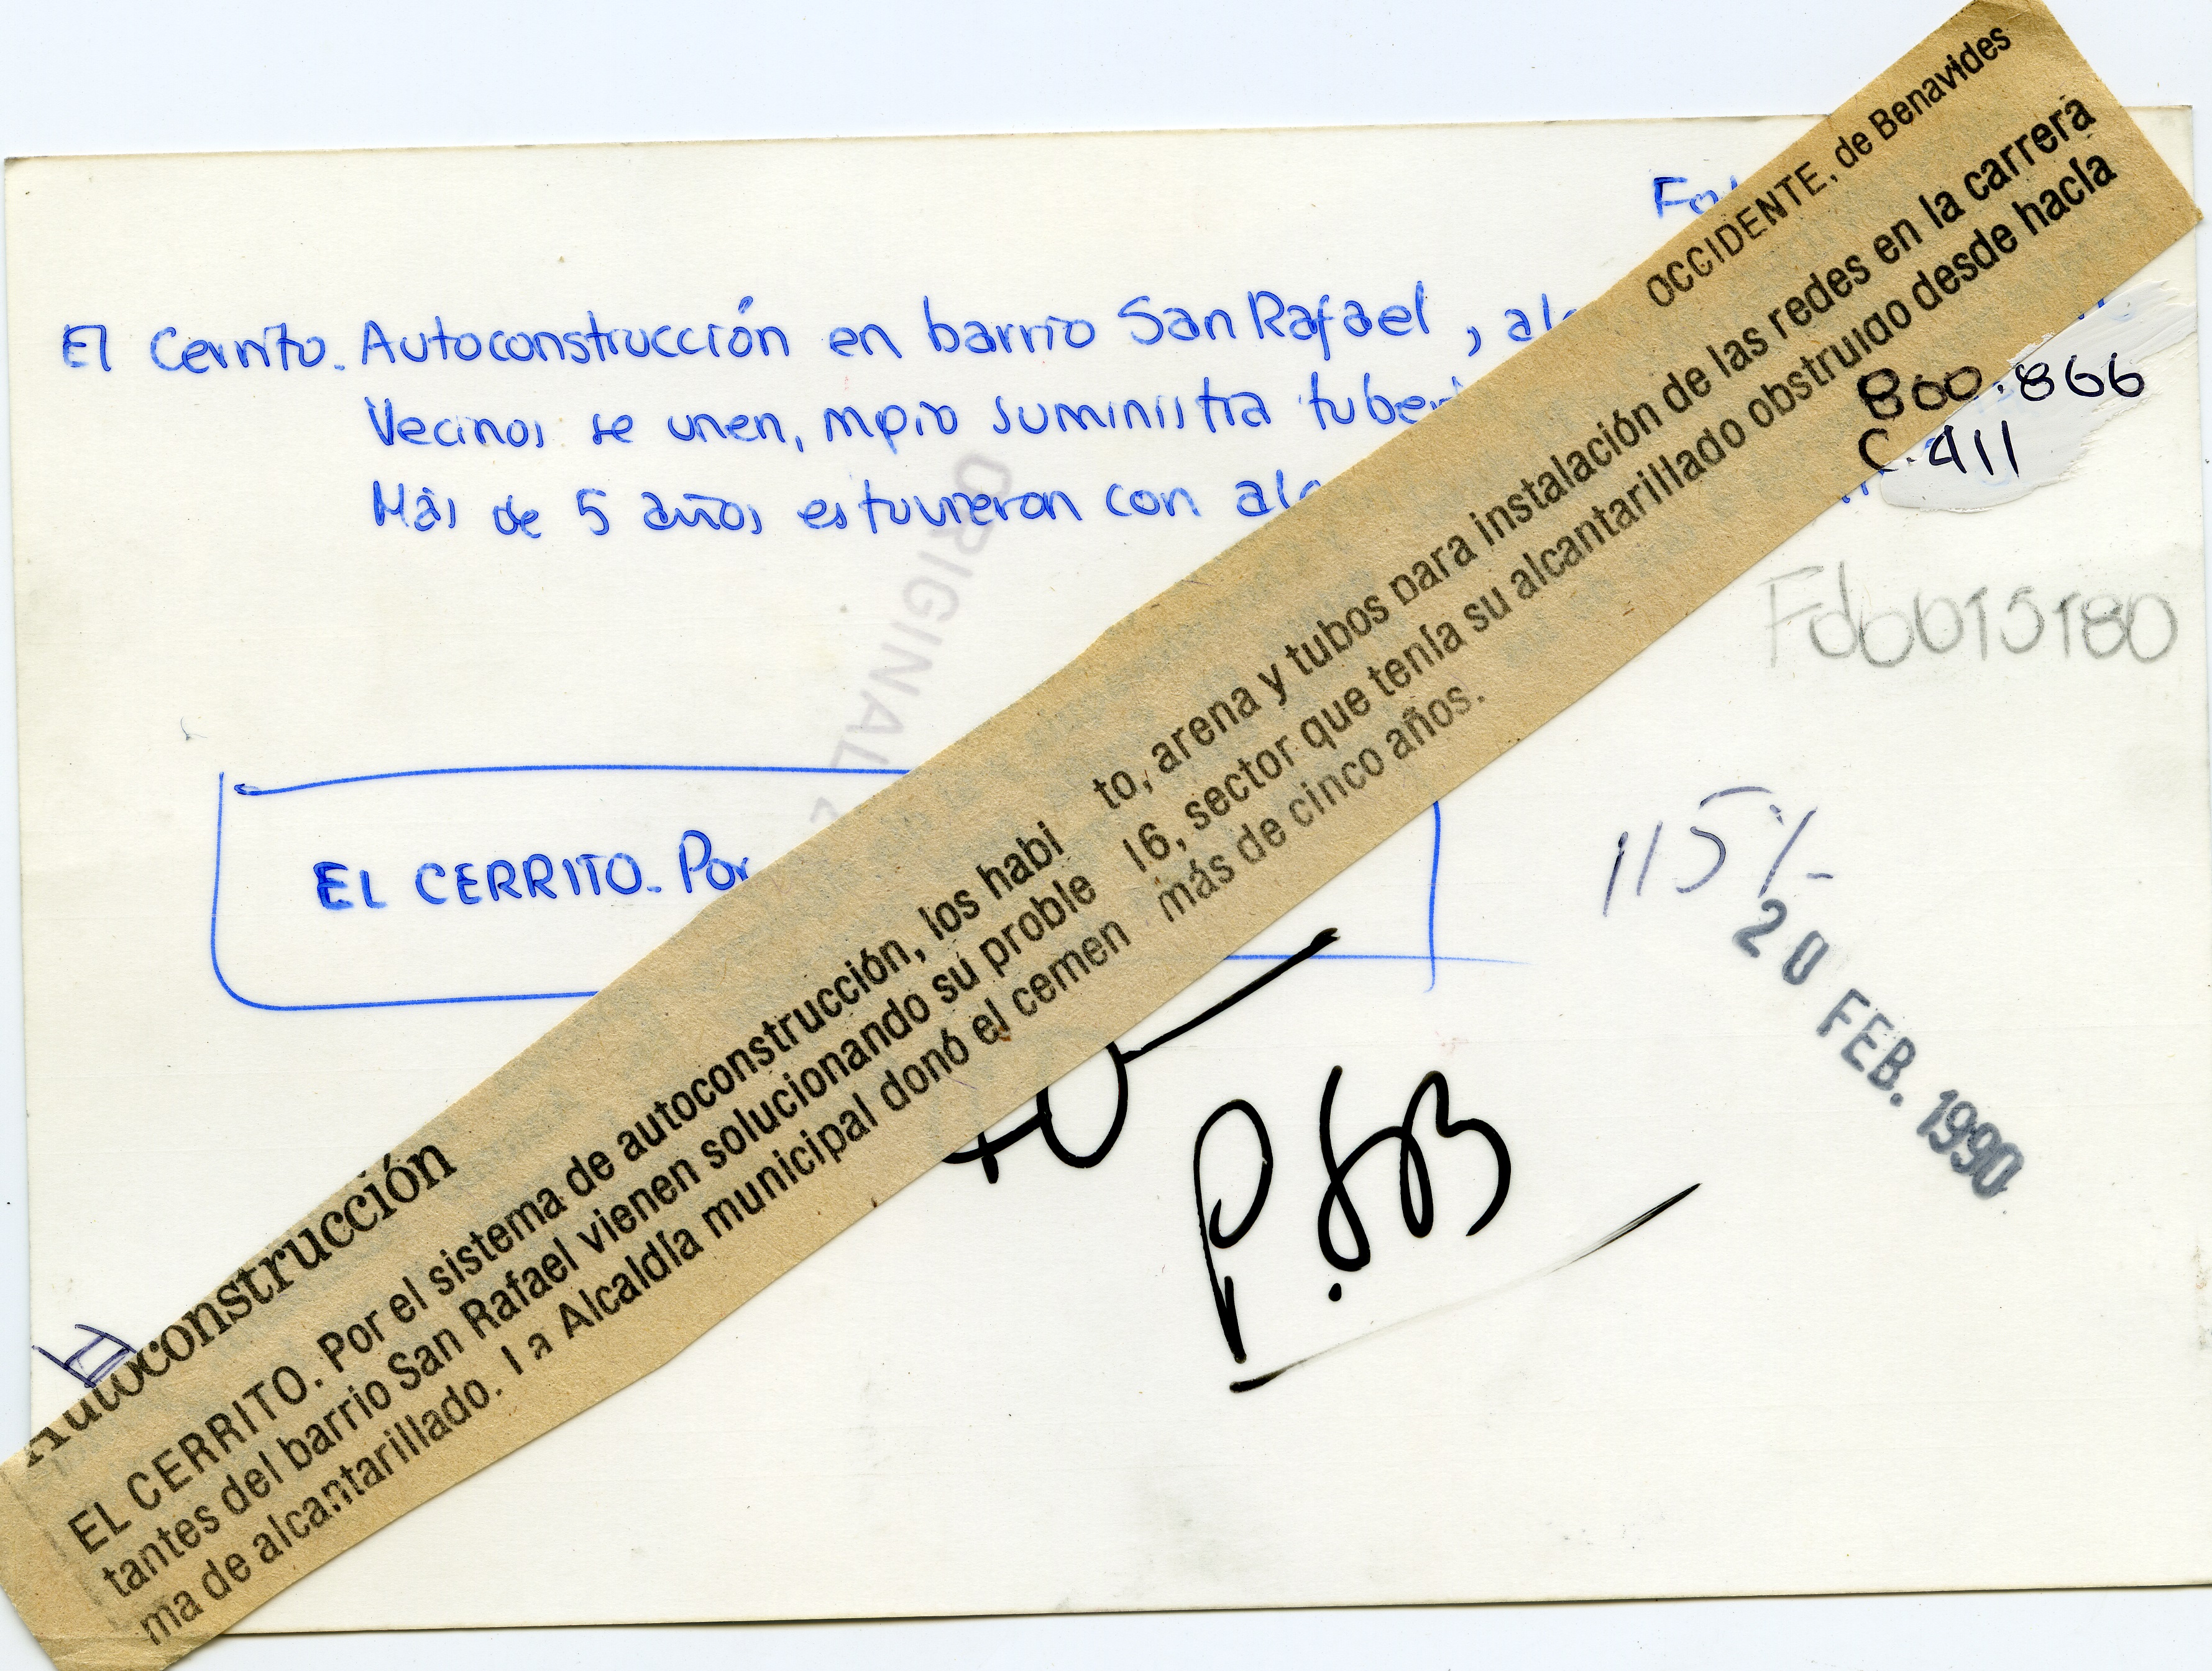 El Cerrito. Autoconstrucción en barrio San Rafael,
Vecinos se unen, mpio suministra
Más de 5 años estuvieron con
800.866
C.411
Fdb015180
ORIGINAL
EL CERRITO. Por
115%
20 FEB. 1990
P.
OCCIDENTE, de Benavides
Autoconstrucción
EL CERRITO. Por el sistema de autoconstrucción, los habi
tantes del barrio San Rafael vienen solucionando su proble
ma de alcantarillado. La Alcaldía municipal donó el cemen
to, arena y tubos para instalación de las redes en la carrera
16, sector que tenía su alcantarillado obstruido desde hacía
más de cinco años.